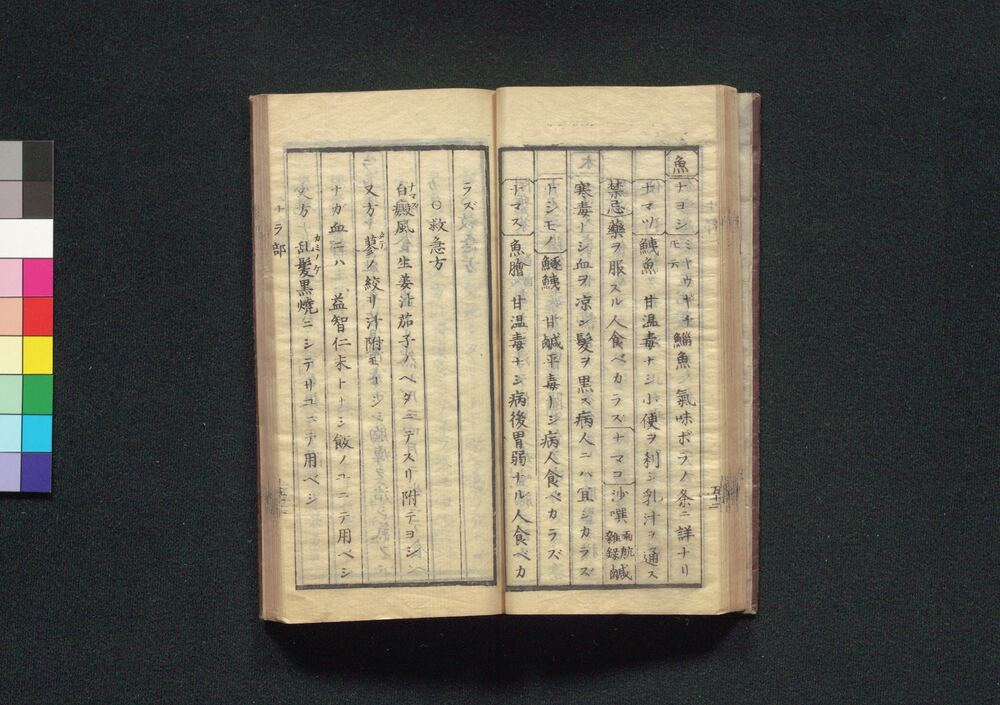 魚
ナヨシ ミヤウギチ モテ 鯔魚 氣味ボラノ条ニ詳ナリ
ナマヅ 鮧魚 甘温毒ナシ小便ヲ利シ乳汁ヲ通ス
禁忌藥ヲ服スル人食ベカラズ ナマコ 沙噀 両航雜録 鹹
寒毒ナシ血ヲ凉シ髪ヲ黒ス病人ニハ宜シカラズ
ナシモノ 鱁鮧 甘鹹平毒ナシ病人食ベカラズ
ナマス 魚膾 甘温毒ナシ病後胃弱ナル人食ベカ
ラズ
○救急方
白癜風 ナマヅ 生姜 茄子ノヘタニテスリ附テヨシ
又方 蓼ノ絞リ汁附モヨシ
ナガ血ニハ 益智仁末トナシ飲ノユニテ用ベシ
又方 乱髪 カミノケ 黒燒ニシテサユニテ用ベシ
ナラ部